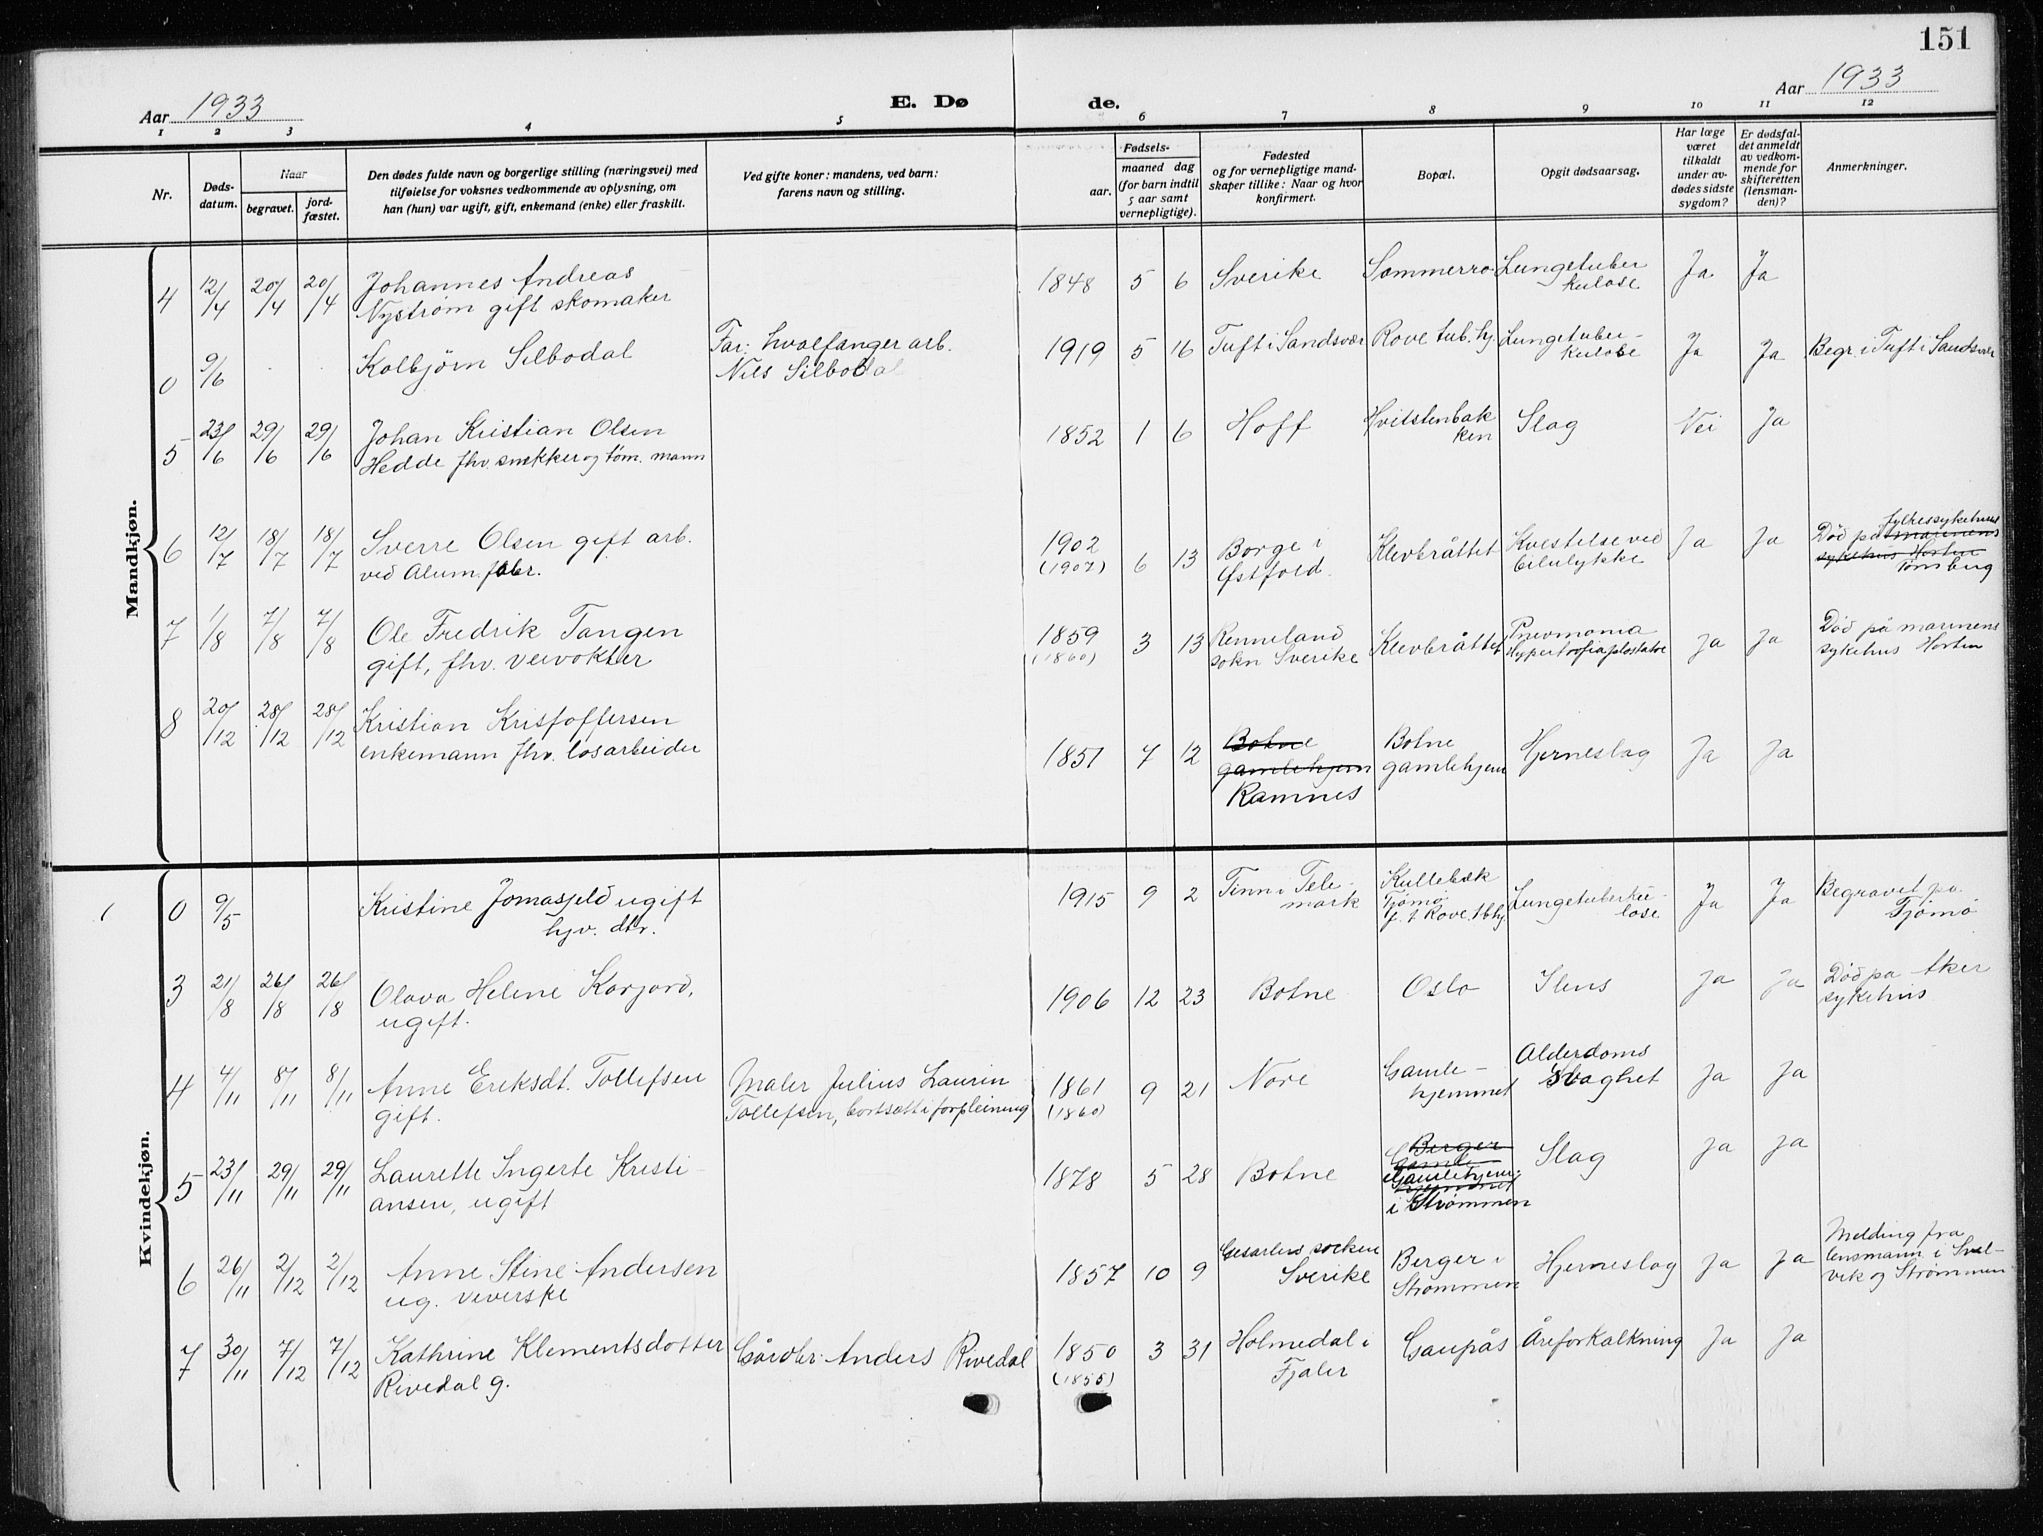 151
Aar 1933
E. Døde.
Aar 1933
1 2 3 4 5 6 7 8 9 10 11 12
Nr.
Døds-datum.
Naar
begravet.
jord-fæstet.
Den dødes fulde navn og borgerlige stilling (næringsvei) med
tilføielse for voksnes vedkommende av oplysning, om
han (hun) var ugift, gift, enkemand (enke) eller fraskilt.
Ved gifte koner: mandens, ved barn:
farens navn og stilling.
Fødsels-
aar.
maaned dag
(for barn indtil
5 aar samt
vernepligtige).
Fødested
og for vernepligtige mand-
skaper tillike: Naar og hvor
konfirmert.
Bopæl.
Opgit dødsaarsag.
Har læge
været
tilkaldt
under av-
dødes sidste
sygdom?
Er dødsfal-
det anmeldt
av vedkom-
mende for
skifteretten
(lensman-
den)?
Anmerkninger.
Mandkjøn.
4 12/4 20/4 20/4 Johannes Andreas
Nystrøm gift skomaker
1848 5 6 Sverike Sommerro Lungetuber
kulose Ja Ja
0 9/6 Kolbjørn Silbodal
Far: hvalfanger arb.
Nils Silbodal
1919 5 16 Tuft i Sandsvær Rove tub. hj. Lungetuber-
kulose Ja Ja Begr. i Tuft i Sandsvær
5 23/6 29/6 29/6 Johan Kristian Olsen
Hedde fhv. snekker og tøm. mann
1852 1 6 Hoff Hvitstenbak
ken Slag Nei Ja
6 12/7 18/7 18/7 Sverre Olsen gift arb.
ved Alum. fabr.
1902
(1907) 6 13 Borge i
Østfold. Klevbråttet Kvestelse ved
bilulykke Ja Ja Død på fylkessykehuset
marinens
sykehus Horten
Tønsberg
7 1/8 7/8 7/8 Ole Fredrik Tangen
gift, fhv. veivokter
1859
(1860) 3 13 Renneland
sokn Sverike Klevbråttet Pneumonia
Hypertrofia plostatae Ja Ja Død på marinens
sykehus Horten
8 20/12 28/12 28/12 Kristian Kristoffersen
enkemann fhv. løsarbeider
1851 7 12 Botne
gamlehjem
Ramnes Botne
gamlehjem Hjerneslag Ja Ja
Kvindekjøn.
1 0 9/5 Kristine Jomasjeld ugift
hjv. dtr.
1915 9 2 Tinn i Tele-
mark Kullebæk
Tjømø
f. t. Rove tbhj. Lungetuberku-
lose Ja Ja Begravet på
Tjømø
3 21/8 26/8 26/8 Olava Helene Korjord,
ugift.
1906 12 23 Botne Oslo Ilens Ja Ja Død på Aker
sykehus
4 4/11 8/11 8/11 Anne Eriksdt. Tollefsen
gift.
Maler Julius Laurin
Tollefsen, bortsatt i forpleining
1861
(1860) 9 21 Nore Gamle-
hjemmet Alderdoms
svaghet Ja Ja
5 23/11 29/11 29/11 Laurette Ingerte Kristi-
ansen, ugift
1878 5 28 Botne Berger
Gamle
Gamlehjem
i Strømmen Slag Ja Ja
6 26/11 2/12 2/12 Anne Stine Andersen
ug. veverske
1857 10 9 socken
Sverike Berger i
Strømmen Hjerneslag Ja Ja Melding fra
lensmann i Svel-
vik og Strømmen
7 30/11 7/12 7/12 Kathrine Klementsdotter
Rivedal g.
Gårdbr. Anders Rivedal
1850
(1855) 3 31 Holmedal i
Fjaler Gaupås Åreforkalkning Ja Ja